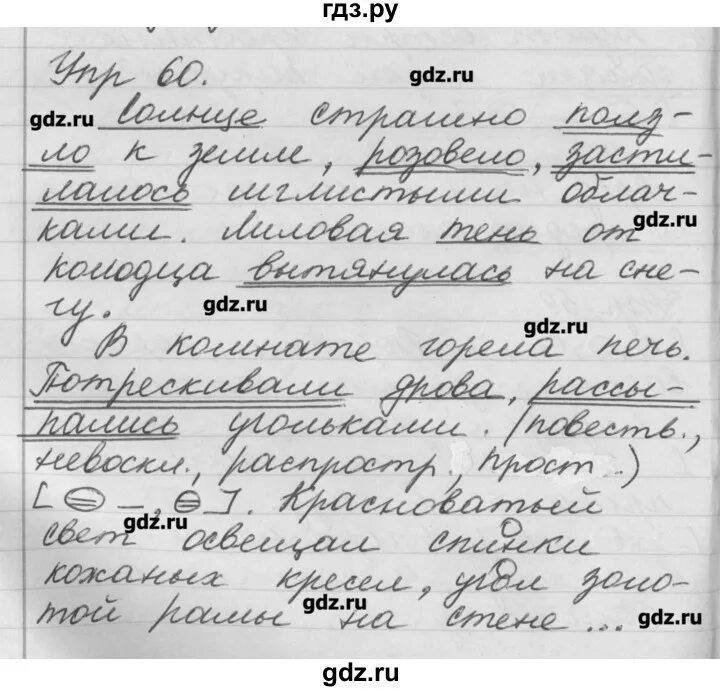 гдз.ру
Упр 60.
gdz.ru
gdz.ru Солнце страшно полз-
ло к земле, розовело, засти-
лалось мглистыми облач-
gdz.ru
ками. Лиловая тень от
колодца вытянулась на сне-
гу. gdz.ru
gdz.ru
В комнате горела печь.
Потрескивали дрова, рассы-
пались угольками. (повеств.,
невоскл., распростр., прост.)
[ = –, = ]. Красноватый
gdz.ru
свет освещал спинки
кожаных кресел, угол золо-
gdz.ru
той рамы на стене ... gdz.ru
gdz.ru